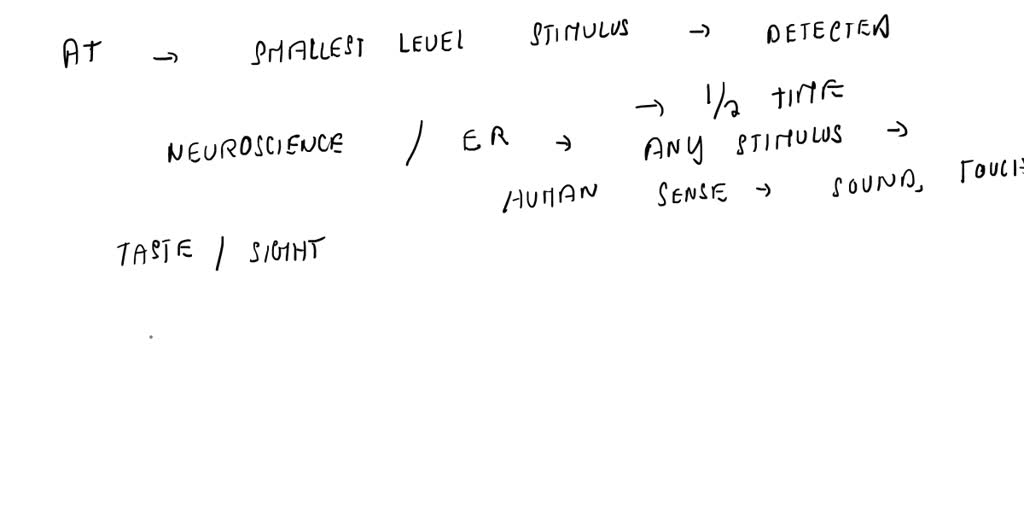 AT → SMALLEST LEVEL STIMULUS → DETECTED
→ 1/2 TIME
NEUROSCIENCE / ER → ANY STIMULUS →
HUMAN SENSE → SOUND, TOUCH
TASTE / SIGHT